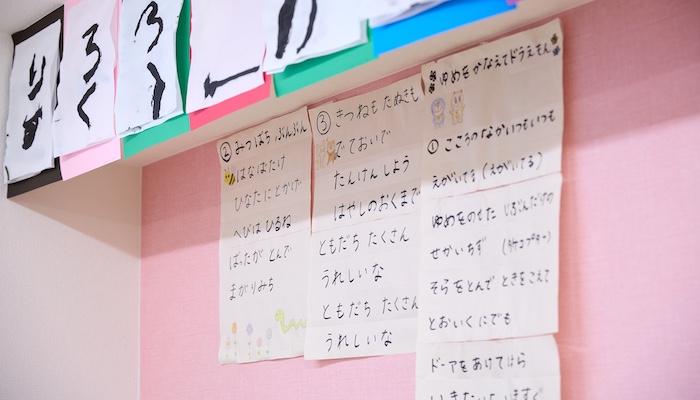 りす
ろく
② みつばち ぶんぶん
はなばたけ
ひなたにとかげ
へびは ひるね
ばったが とんで
まがりみち
③ きつねも たぬきも
でておいで
たんけん しよう
はやしのおくまで
ともだち たくさん
うれしいな
ともだち たくさん
うれしいな
ゆめをかなえてドラえもん
① こころのなかいつもいつも
えがいてる (えがいてる)
ゆめをのせた じぶんだけの
せかいちず (タケコプター)
そらをとんで ときをこえて
とおいくにでも
ドーアをあけてほら